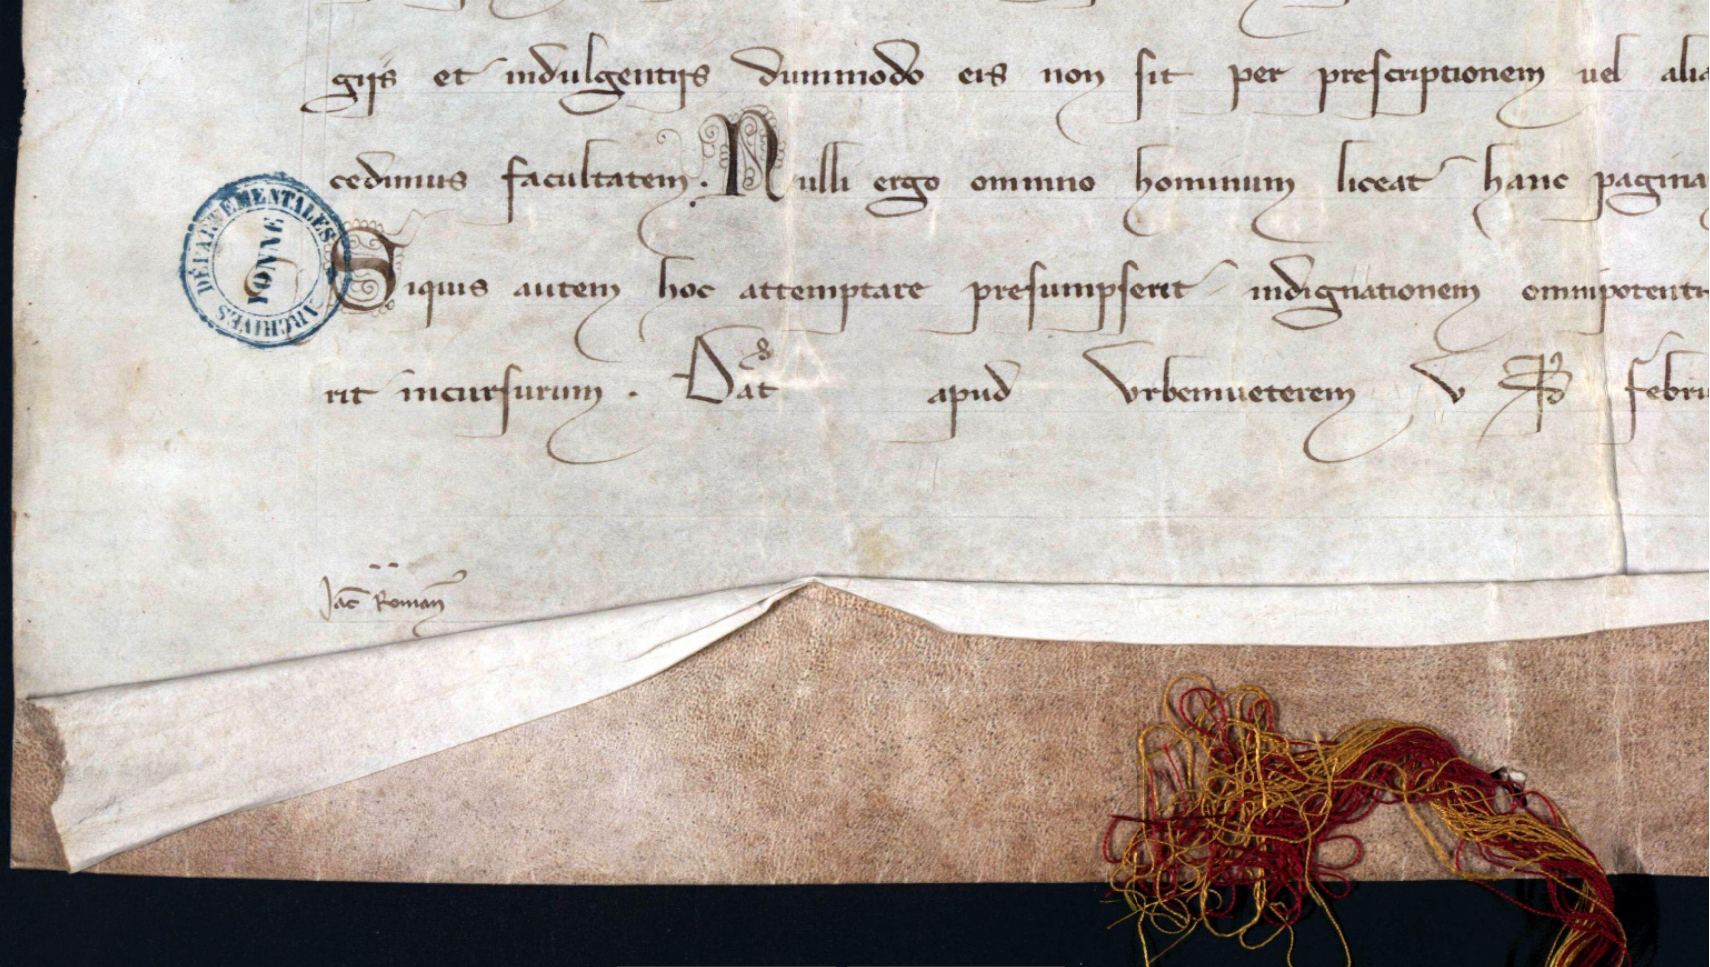 gijs et indulgentijs dummodo eis non sit per prescriptionem uel alia
cedimus facultatem. Nulli ergo omnino hominum liceat hanc pagina
Siquis autem hoc attemptare presumpserit indignationem omnipotenti
rit incursurum. Dat apud Vrbemueterem V kl febru
Iac Roman
ARCHIVES DÉPARTEMENTALES
YONNE